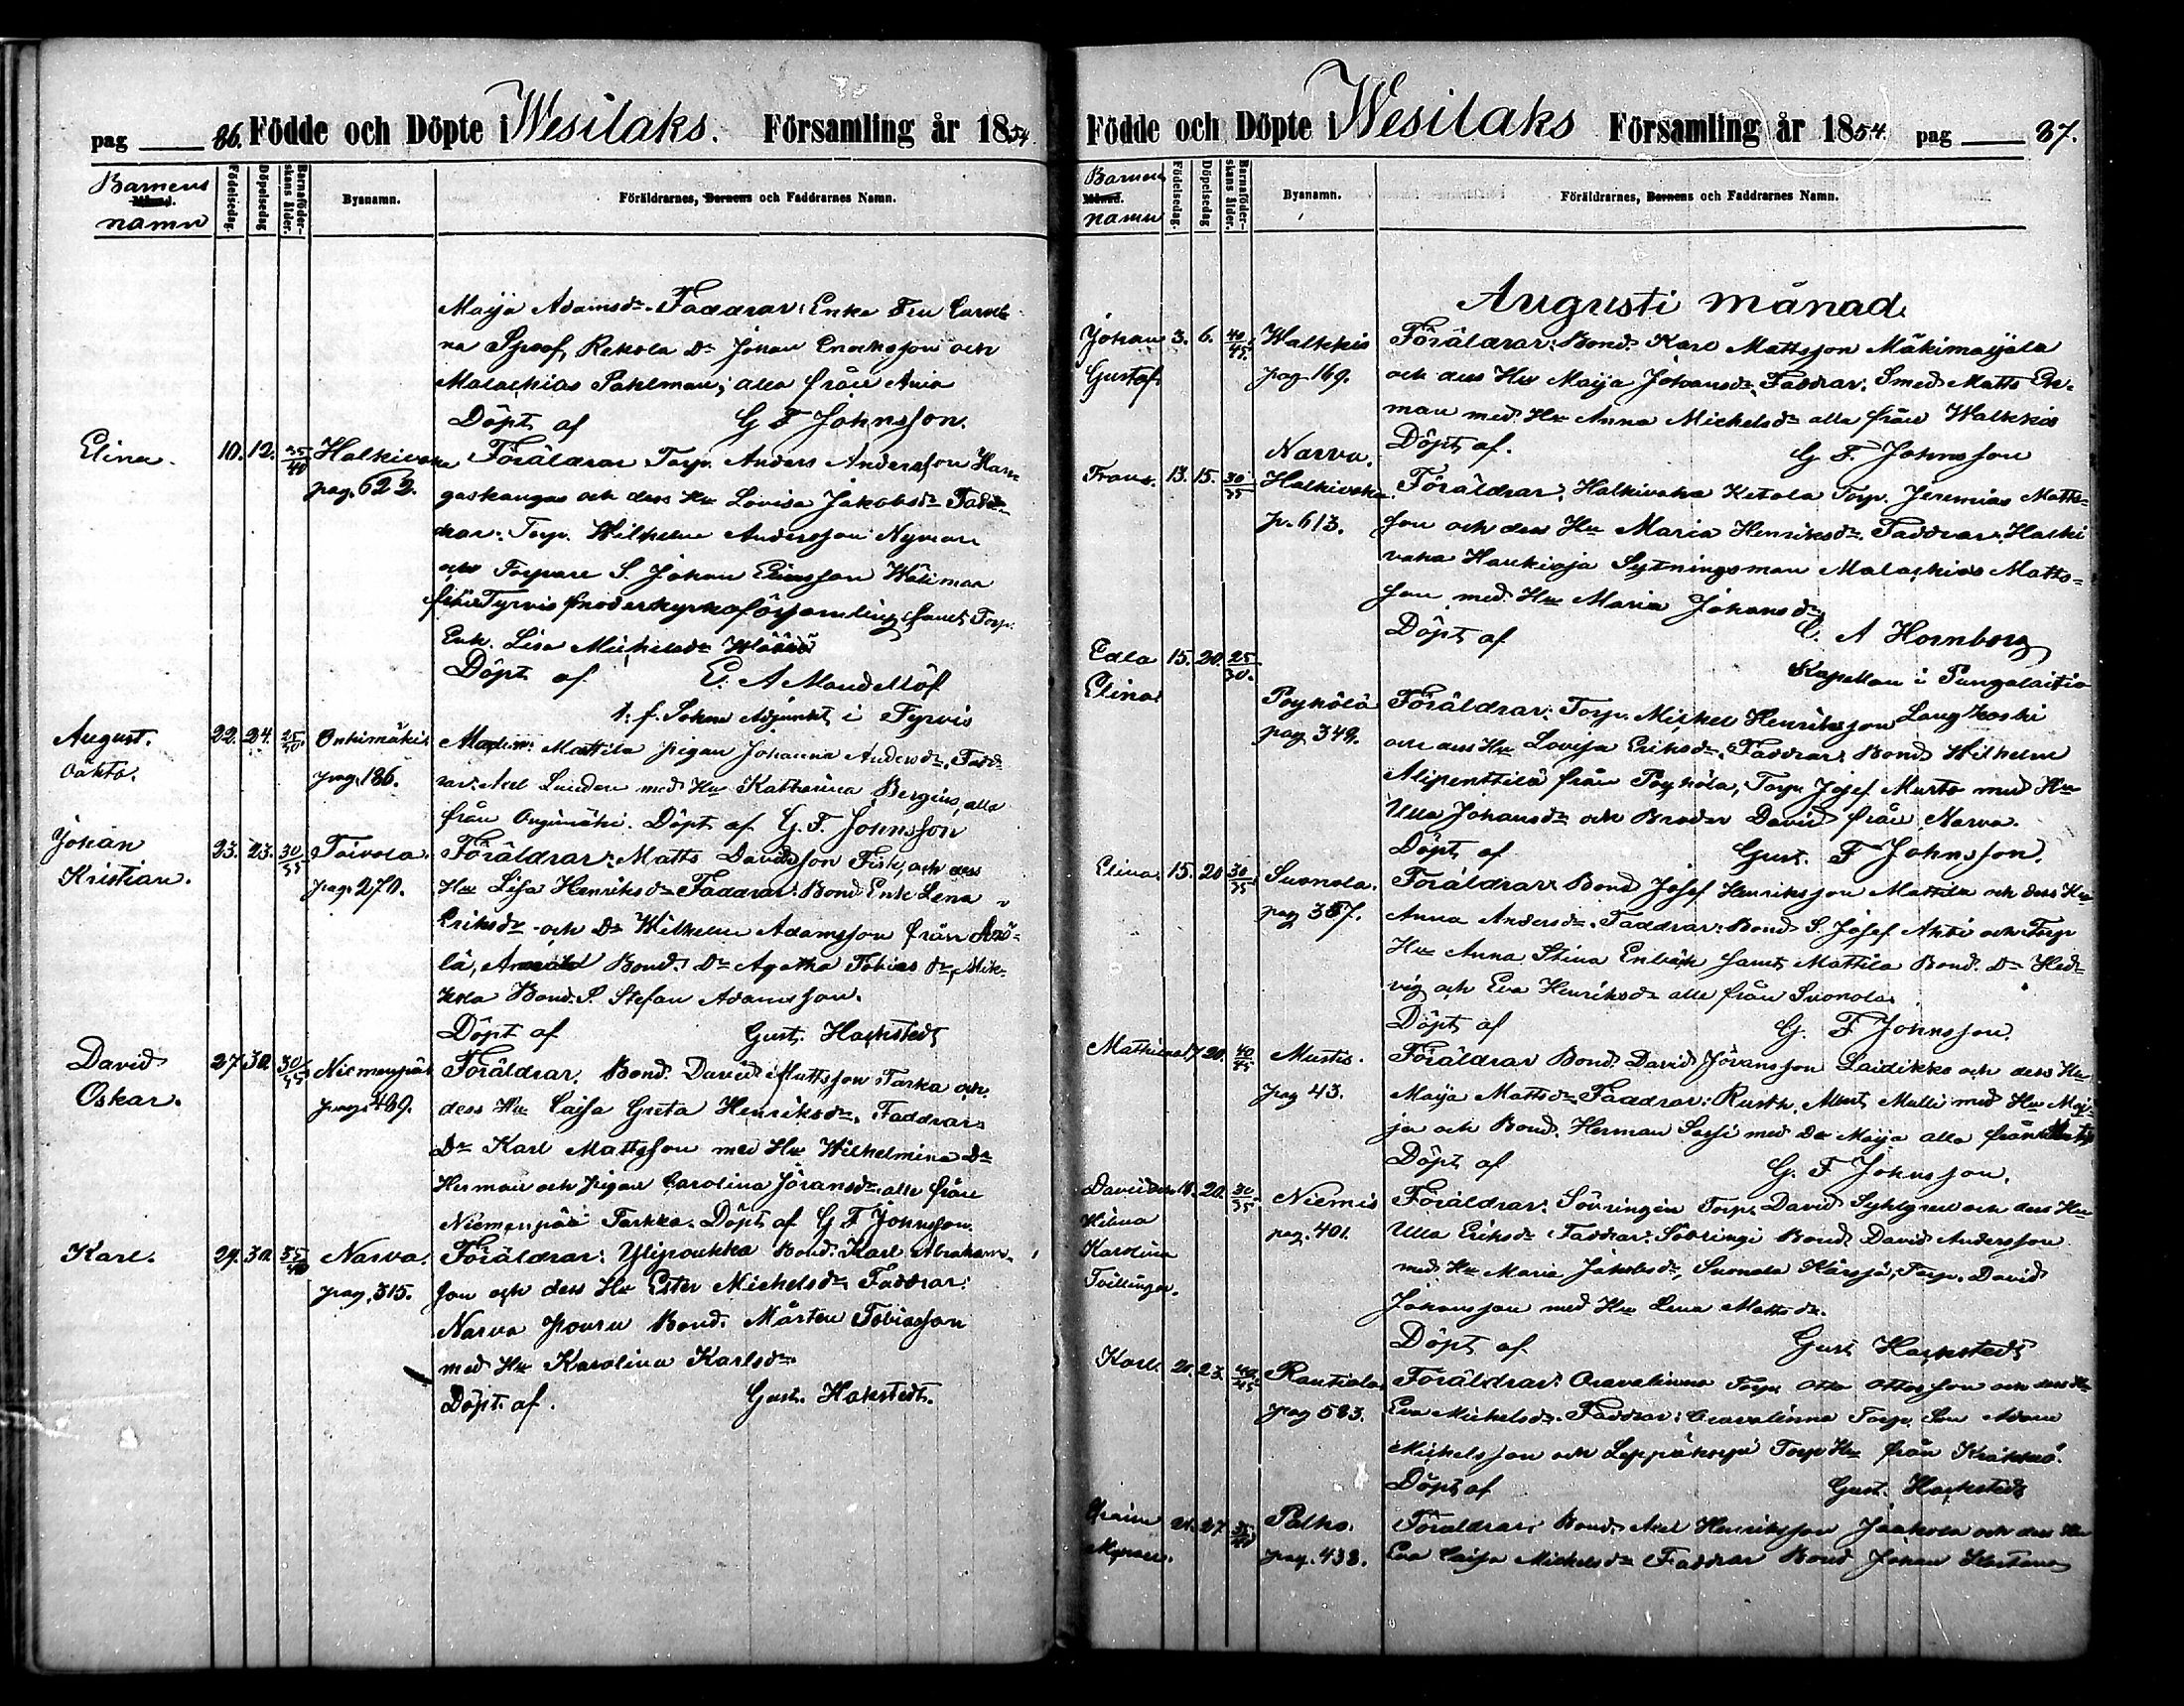 pag 86. Födde och Döpte i Wesilaks. Församling år 1854.
Barnens namn
Månad.
Födelsedag.
Döpelsedag
Barnaföderskans ålder.
Byanamn.
Föräldrarnes, Barnens och Faddrarnes Namn.
Maija Adamsdr. Faddrar: Enke Fru Caroli
na Spoof, Rekola Dr Johan Enoksson och
Malachias Pahlman; alla från Ania
Döpt af G F Johnsson.
Elina. 10. 12. 35/40 Halkivaha Föräldrar Torp. Anders Andersson Han
pag. 622. gaskangas och dess Hu Lovisa Jakobsdr Fadd
rar: Torp. Wilhelm Andersson Nyman
och Torpare S. Johan Eliasson Wäkimaa
från Tyrvis moderkyrkoförsamling samt Torp.
Enk. Lisa Michelsdr
Döpt af E. A Mandellöf
v. f. Sokne Adjunkt i Tyrvis
August. 22. 24. Onkimäki Mattila pigan Johanna Andersdr. Fadd
oäkta. pag. 186. rar: Axel Lunden med Hu Katharina Bergius, alla
från Ongimäki. Döpt af G. F. Johnsson
Johan 23. 23. 30/35 Toivola. Föräldrar: Matts Davidsson Fisk, och dess
Kristian. pag. 270. Hu Lisa Henriksdr Faddrar: Bond Enk Lena
Eriksdr och Dr Wilhelm Adamsson från
lä, Bond. Dr Agatha Tobias dr,
kola Bond. S. Stefan Adamsson.
Döpt af Gust. Hackstedt
David 27. 30. 30/35 Niemenpää Föräldrar. Bond. David Mattsson Tarka och
Oskar. pag. 489. dess Hu Caisa Greta Henriksdr. Faddrar
Dr Karl Mattsson med Hu Wilhelmina Dr
Herman och pigan Carolina Jöransdr alla från
Niemenpää Tarkka. Döpt af G F Johnsson.
Karl. 29. 30. 35/40 Narva. Föräldrar: Yliproukka Bond. Karl Abrahams
pag. 315. son och dess Hu Ester Michelsdr Faddrar:
Narva Pouru Bond. Mårten Tobiasson
med Hu Karolina Karlsdr.
Döpt af. Gust. Hackstedt.
Födde och Döpte i Wesilaks Församling år 1854. pag 87.
Barnens namn
Månad.
Födelsedag.
Döpelsedag
Barnaföderskans ålder.
Byanamn.
Föräldrarnes, Barnens och Faddrarnes Namn.
Augusti månad
Johan 3. 6. 40/45 Walkkis Föräldrar: Bond. Karl Mattsson Mäkimaijala
Gustaf. pag 169. och dess Hu Maija Johansdr. Faddrar. Smed Matts Ek-
man med Hu Anna Michelsdr alla från Walkkis
Döpt af. G. F. Johnsson
Narva.
Frans. 13. 15. 30/35 Halkivaha Föräldrar. Halkivaha Ketola Torp. Jeremias Matts-
p. 613. son och dess Hu Maria Henriksdr. Faddrar. Halki
vaha Haukioja Sytningsman Malachias Matts-
son med Hu Maria Johansdr
Döpt af C. A Hornborg
Kapellan i Pungalaitio
Edla 15. 20. 25/30.
Elina. Poyhölä Föräldrar: Torp. Michel Henriksson Laugkoski
pag 349. och dess Hu Lovisa Eriksdr. Faddrar: Bond Wilhelm
Alipenttilä från Poyhölä, Torp. Josef Murto med Hu
Ulla Johansdr och Broder David från Narva.
Döpt af Gust. F Johnsson.
Elina. 15. 20 30/35 Suonola. Föräldrar: Bond Josef Henriksson Mattila och dess Hu
pag 357. Anna Andersdr. Faddrar: Bond S. Josef Ahti och Torp
Hu Anna Stina Enbäck samt Mattila Bond. Dr Hed-
vig och Eva Henriksdr alla från Suonola.
Döpt af G. F Johnsson.
17. 20. 40/45 Mustis. Föräldrar Bond. David Jöransson Laidikko och dess Hu
pag 43. Maija Mattsdr Faddrar: Rusth. Albert Mulli med Hu Mai-
ja och Bond. Herman Sassi med Dr Maija alla från
Döpt af G. F Johnsson.
18. 20. 30/35 Niemis Föräldrar: Sövringin Torp. David och dess Hu
Wilma pag. 401. Ulla Eriksdr Faddrar: Sövringi Bond David Andersson
Karolina med Hu Maria Jakobsdr, Suonola Torp. David
Tvillingar. Johansson med Hu Lena Mattsdr.
Döpt af Gust Hackstedt
Karl 20. 23. 40/45 Rautiala Föräldrar: Oravalinna Torp Otto Ottosson och dess Hu
pag 583. Eva Michelsdr. Faddrar: Oravalinna Torp. Son Adam
Michelsson och Leppäkorpi Torp Hu från
Döpt af Gust. Hackstedt
Efraim 21. 27. Palho. Föräldrar: Bond. Axel Henriksson Jaakola och dess Hu
pag. 438. Eva Caisa Michelsdr Faddrar Bond Johan